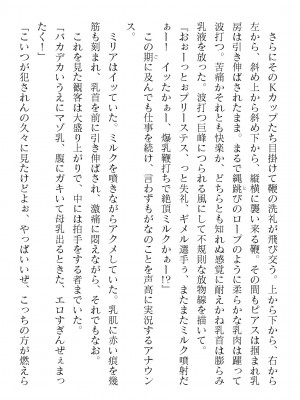 さらにそのKカップたち目掛けて鞭の洗礼が飛び交う。上から下から、右から
左から、斜め上から斜め下から、縦横に襲い来る鞭。その間もピアスは掴まれ乳
房は引き伸ばされたまま。まるで縄跳びのロープのように柔らかな乳肉は躍って
波打つ。苦痛かそれとも快楽か、どちらとも知れぬ感覚に耐えかね乳首は膨らみ
乳液を放った。波打つ巨峰につられる風にして不規則な放物線を描いて。
「おぉーっとぉプリーステス、っと失礼、ギメル選手ぅ、またまたミルク噴射だ
ぁー！　イッたかぁー、爆乳鞭打ちで絶頂ミルクかぁー!?」
　この期に及んでも仕事を続け、言わずもがなのことを声高に実況するアナウン
　ミリアはイッていた。ミルクを噴きながらアクメしていた。乳肌に赤い痕を幾
筋も刻まれ、乳首を前に引き伸ばされ、激痛に悶えながら、それでもなお。
　これを見た観客は大盛り上がりで、中には拍手をする者までいた。
「バカデカいうえにマゾ乳、腹にガキいて母乳出るときた、エロすぎんぜぇまっ
たく！」
「こいつが犯されんの久々に見たけどよぉ、やっぱいいぜ、こっちの方が燃えら